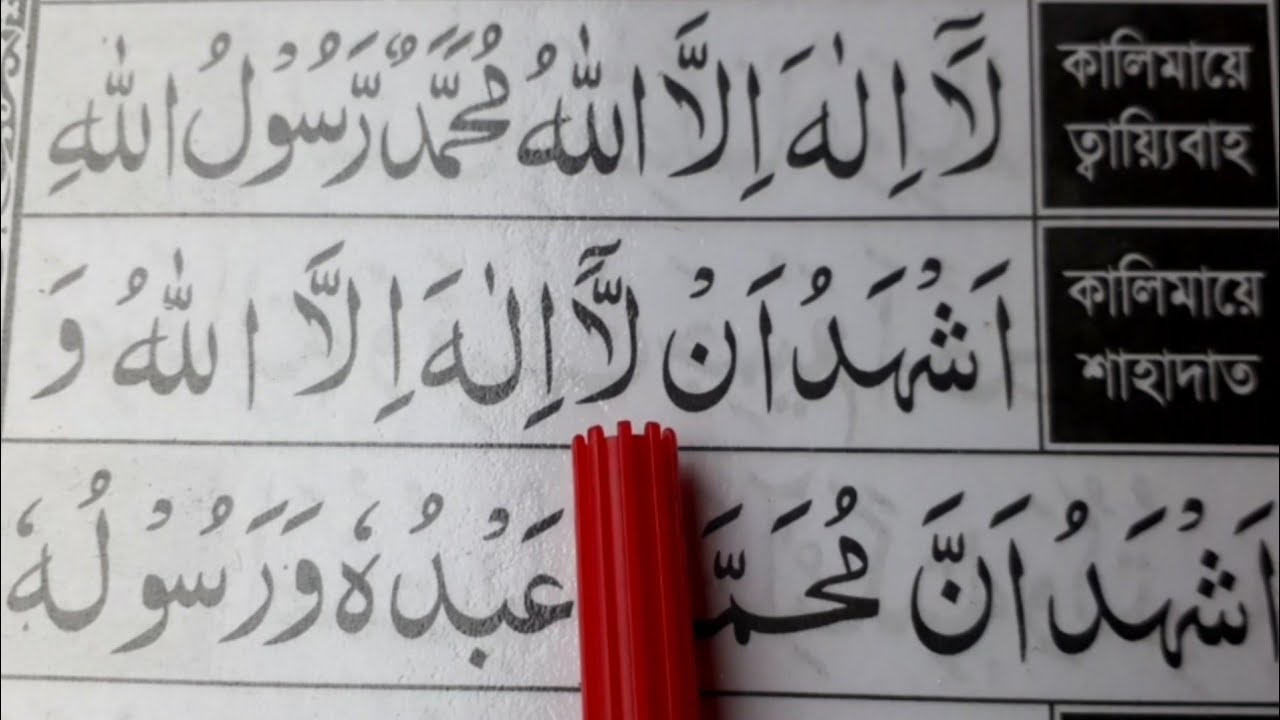 কালিমায়ে
ত্বায়্যিবাহ
لَآ اِلٰهَ اِلَّا اللّٰهُ مُحَمَّدٌ رَّسُوْلُ اللّٰهِ
কালিমায়ে
শাহাদাত
اَشْهَدُ اَنْ لَّآ اِلٰهَ اِلَّا اللّٰهُ وَ
اَشْهَدُ اَنَّ مُحَمَّ عَبْدُهٗ وَرَسُوْلُهٗ